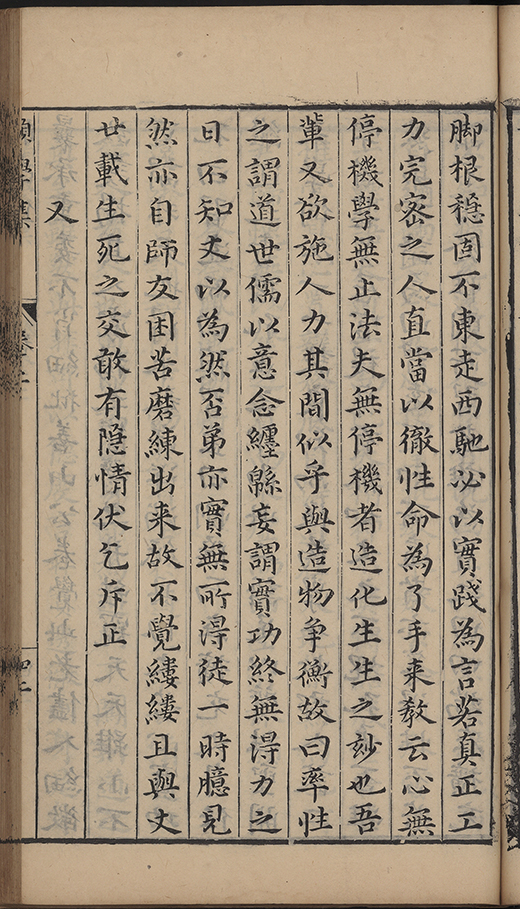 脚根穩固不東走西馳必以實踐為言若真正工
力完密之人直當以徹性命為了手来教云心無
停機學無止法夫無停機者造化生生之妙也吾
軰又欲施人力其間似乎與造物争衡故曰率性
之謂道世儒以意念纏緜妄謂實功終無得力之
日不知丈以為然否弟亦實無所得徒一時臆見
然亦自師友困苦磨練出来故不覺縷縷且與丈
廿載生死之交敢有隐情伏乞斥正
又
學集